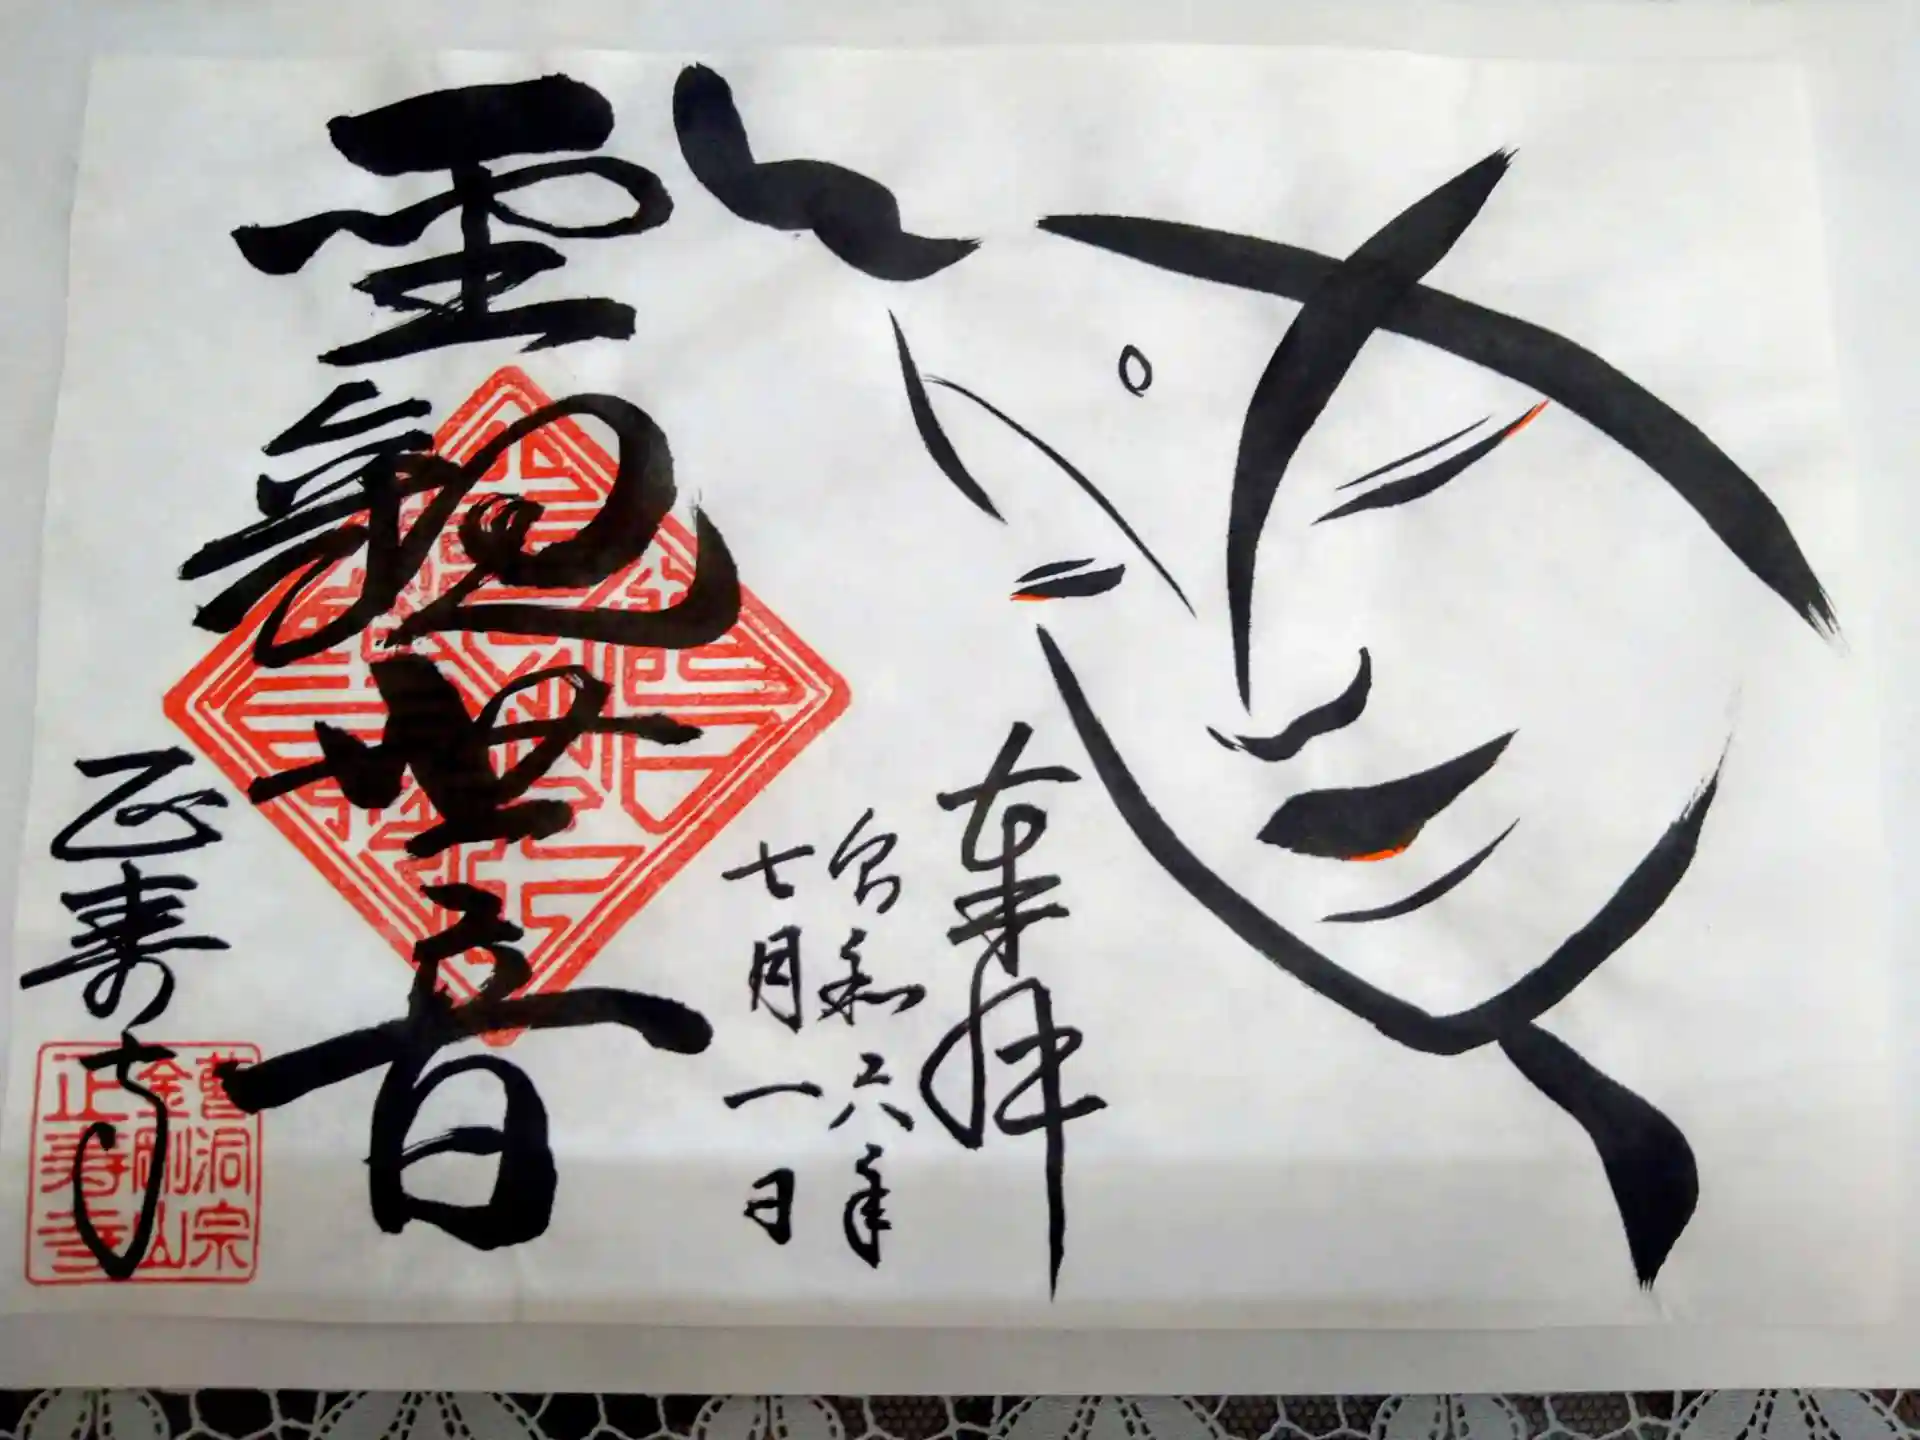 奉拝
令和六年
七月一日
聖観世音
正寿寺
曹洞宗
金剛山
正寿寺